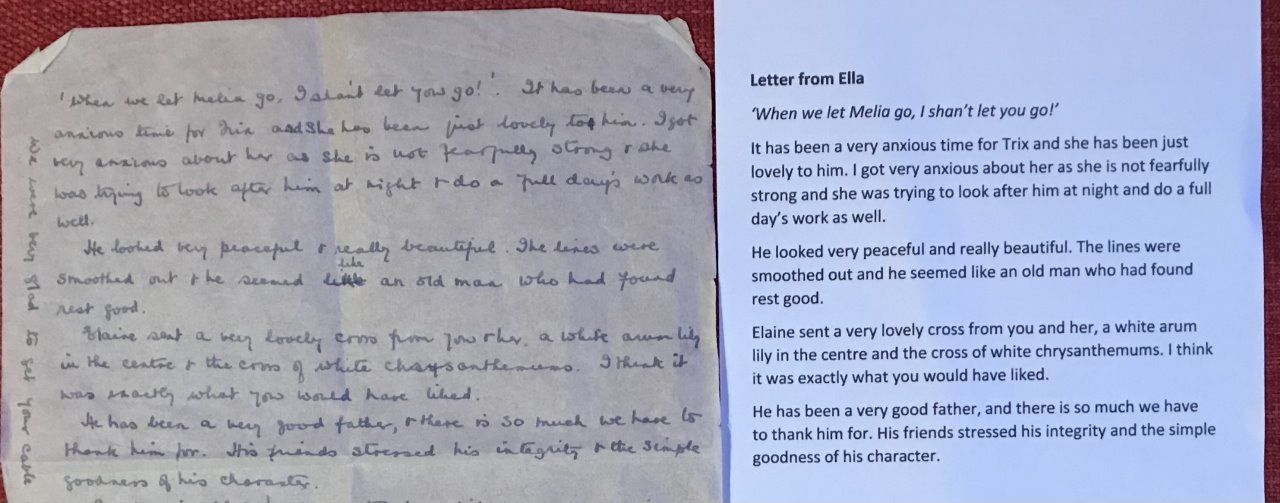 'When we let Melia go, I shan't let you go!'. It has been a very
anxious time for Trix and she has been just lovely to him. I got
very anxious about her as she is not fearfully strong & she
was trying to look after him at night & do a full day's work as
well.
He looked very peaceful & really beautiful. The lines were
smoothed out & he seemed like an old man who had found
rest good.
Elaine sent a very lovely cross from you & her, a white arum lily
in the centre & the cross of white chrysanthemums. I think it
was exactly what you would have liked.
He has been a very good father, & there is so much we have to
thank him for. His friends stressed his integrity & the simple
goodness of his character.
We were very glad to get your cable
Letter from Ella
'When we let Melia go, I shan't let you go!'
It has been a very anxious time for Trix and she has been just
lovely to him. I got very anxious about her as she is not fearfully
strong and she was trying to look after him at night and do a full
day's work as well.
He looked very peaceful and really beautiful. The lines were
smoothed out and he seemed like an old man who had found
rest good.
Elaine sent a very lovely cross from you and her, a white arum
lily in the centre and the cross of white chrysanthemums. I think
it was exactly what you would have liked.
He has been a very good father, and there is so much we have
to thank him for. His friends stressed his integrity and the simple
goodness of his character.